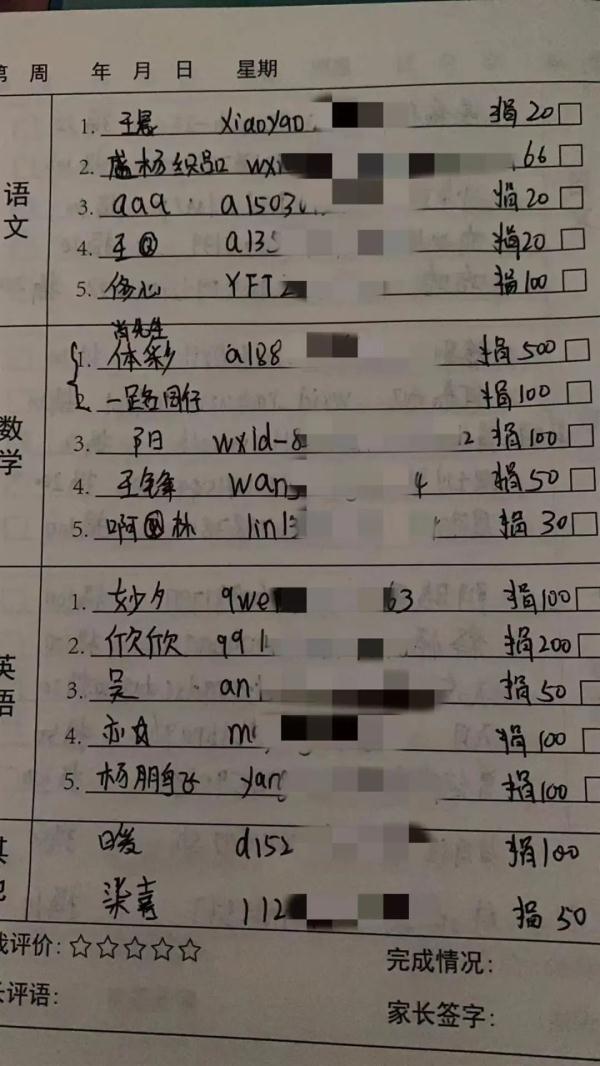 第 周 年 月 日 星期
语文
1. 王晨 xiaoyao 捐20
2. 盛杨织品 wxi 66
3. aaa a1503 捐20
4. 王 a13 捐20
5. 修心 YFTz 捐100
数学
肖先生
1. 体彩 a188 捐500
2. 一路同行 捐100
3. 阳 wxid-8 2 捐100
4. 王锋 wang 4 捐50
5. 啊 林 lin1 捐30
英语
1. 妙夕 qwe 63 捐100
2. 欣欣 qq1 捐200
3. 吴 an 捐50
4. 亦 m 捐100
5. 杨鹏飞 yang 捐100
其
暖 d152 捐100
柒喜 112 捐50
我评价:☆☆☆☆☆
完成情况:
长评语:
家长签字: